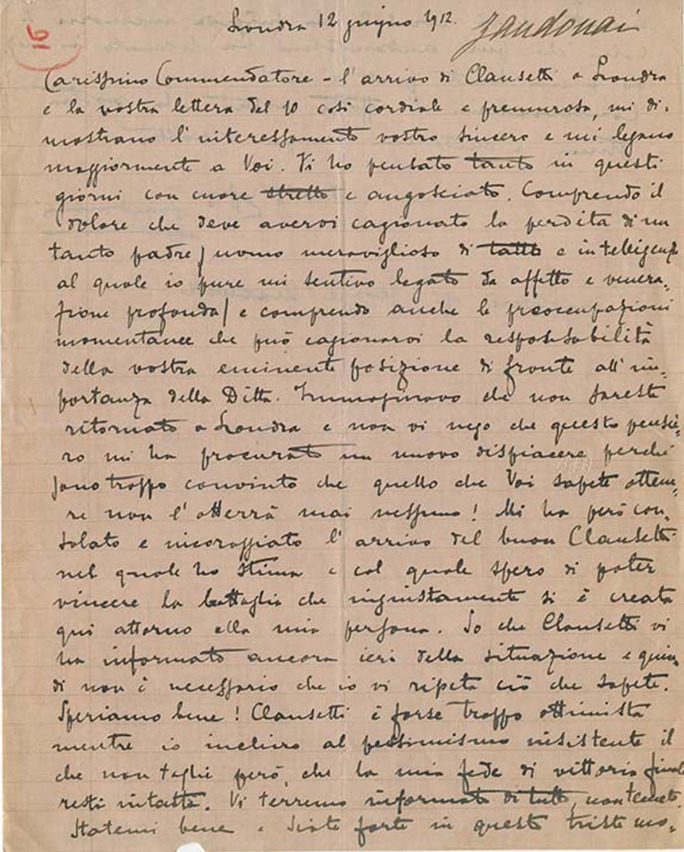 16
Londra 12 giugno 1912. Zandonai
Carissimo Commendatore - l'arrivo di Clausetti a Londra
e la vostra lettera del 10 così cordiale e premurosa, mi di-
mostrano l'interessamento vostro sincero e mi legano
maggiormente a Voi. Vi ho pensato tanto in questi
giorni con cuore stretto e angosciato. Comprendo il
dolore che deve avervi cagionato la perdita di un
tanto padre / uomo meraviglioso di tatto e intelligenza
al quale io pure mi sentivo legato da affetto e venera-
zione profonda / e comprendo anche le preoccupazioni
momentanee che può cagionarvi la responsabilità
della vostra eminente posizione di fronte all'im-
portanza della Ditta. Immaginavo che non sareste
ritornato a Londra e non vi nego che questo pensie-
ro mi ha procurato un nuovo dispiacere perché
sono troppo convinto che quello che Voi sapete ottene-
re non l'otterrà mai nessuno! Mi ha però con-
solato e incoraggiato l'arrivo del buon Clausetti
nel quale ho stima e col quale spero di poter
vincere la battaglia che ingiustamente si è creata
qui attorno alla mia persona. So che Clausetti vi
ha informato ancora ieri della situazione e quin-
di non è necessario che io vi ripeta ciò che sapete.
Speriamo bene! Clausetti è forse troppo ottimista
mentre io inclino al pessimismo insistente il
che non toglie però, che la mia fede di vittoria finale
resti intatta. Vi terremo informato di tutto, non temete.
Statemi bene e siate forte in questo triste mo-